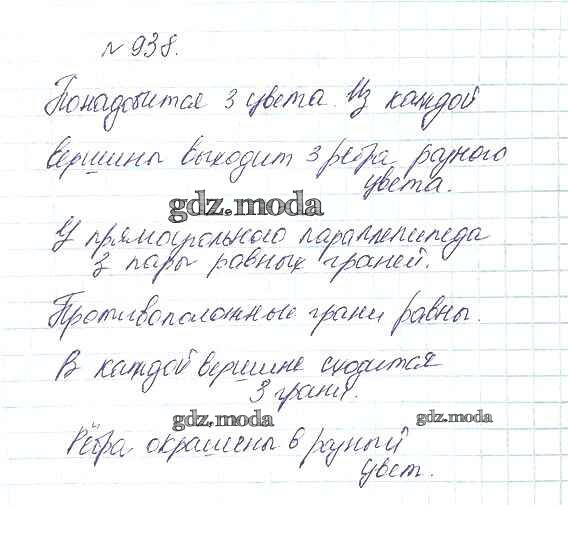 № 938.
Понадобится 3 цвета. Из каждой
вершины выходит 3 ребра разного
цвета.
gdz.moda
У прямоугольного параллепипеда
3 пары равных граней.
Противоположные грани равны.
В каждой вершине сходится
3 грани.
gdz.moda
gdz.moda
Рёбра окрашены в разный
цвет.